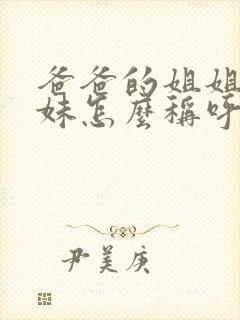 爸爸的姐姐
妹怎麼稱呼
尹美庚